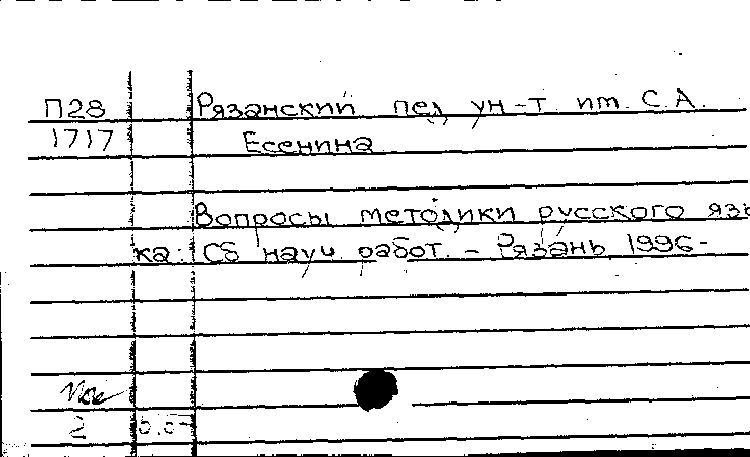 П28 Рязанский пед ун-т им. С.А.
1717 Есенина
Вопросы методики русского язы
ка: Сб науч работ. – Рязань, 1996-
2